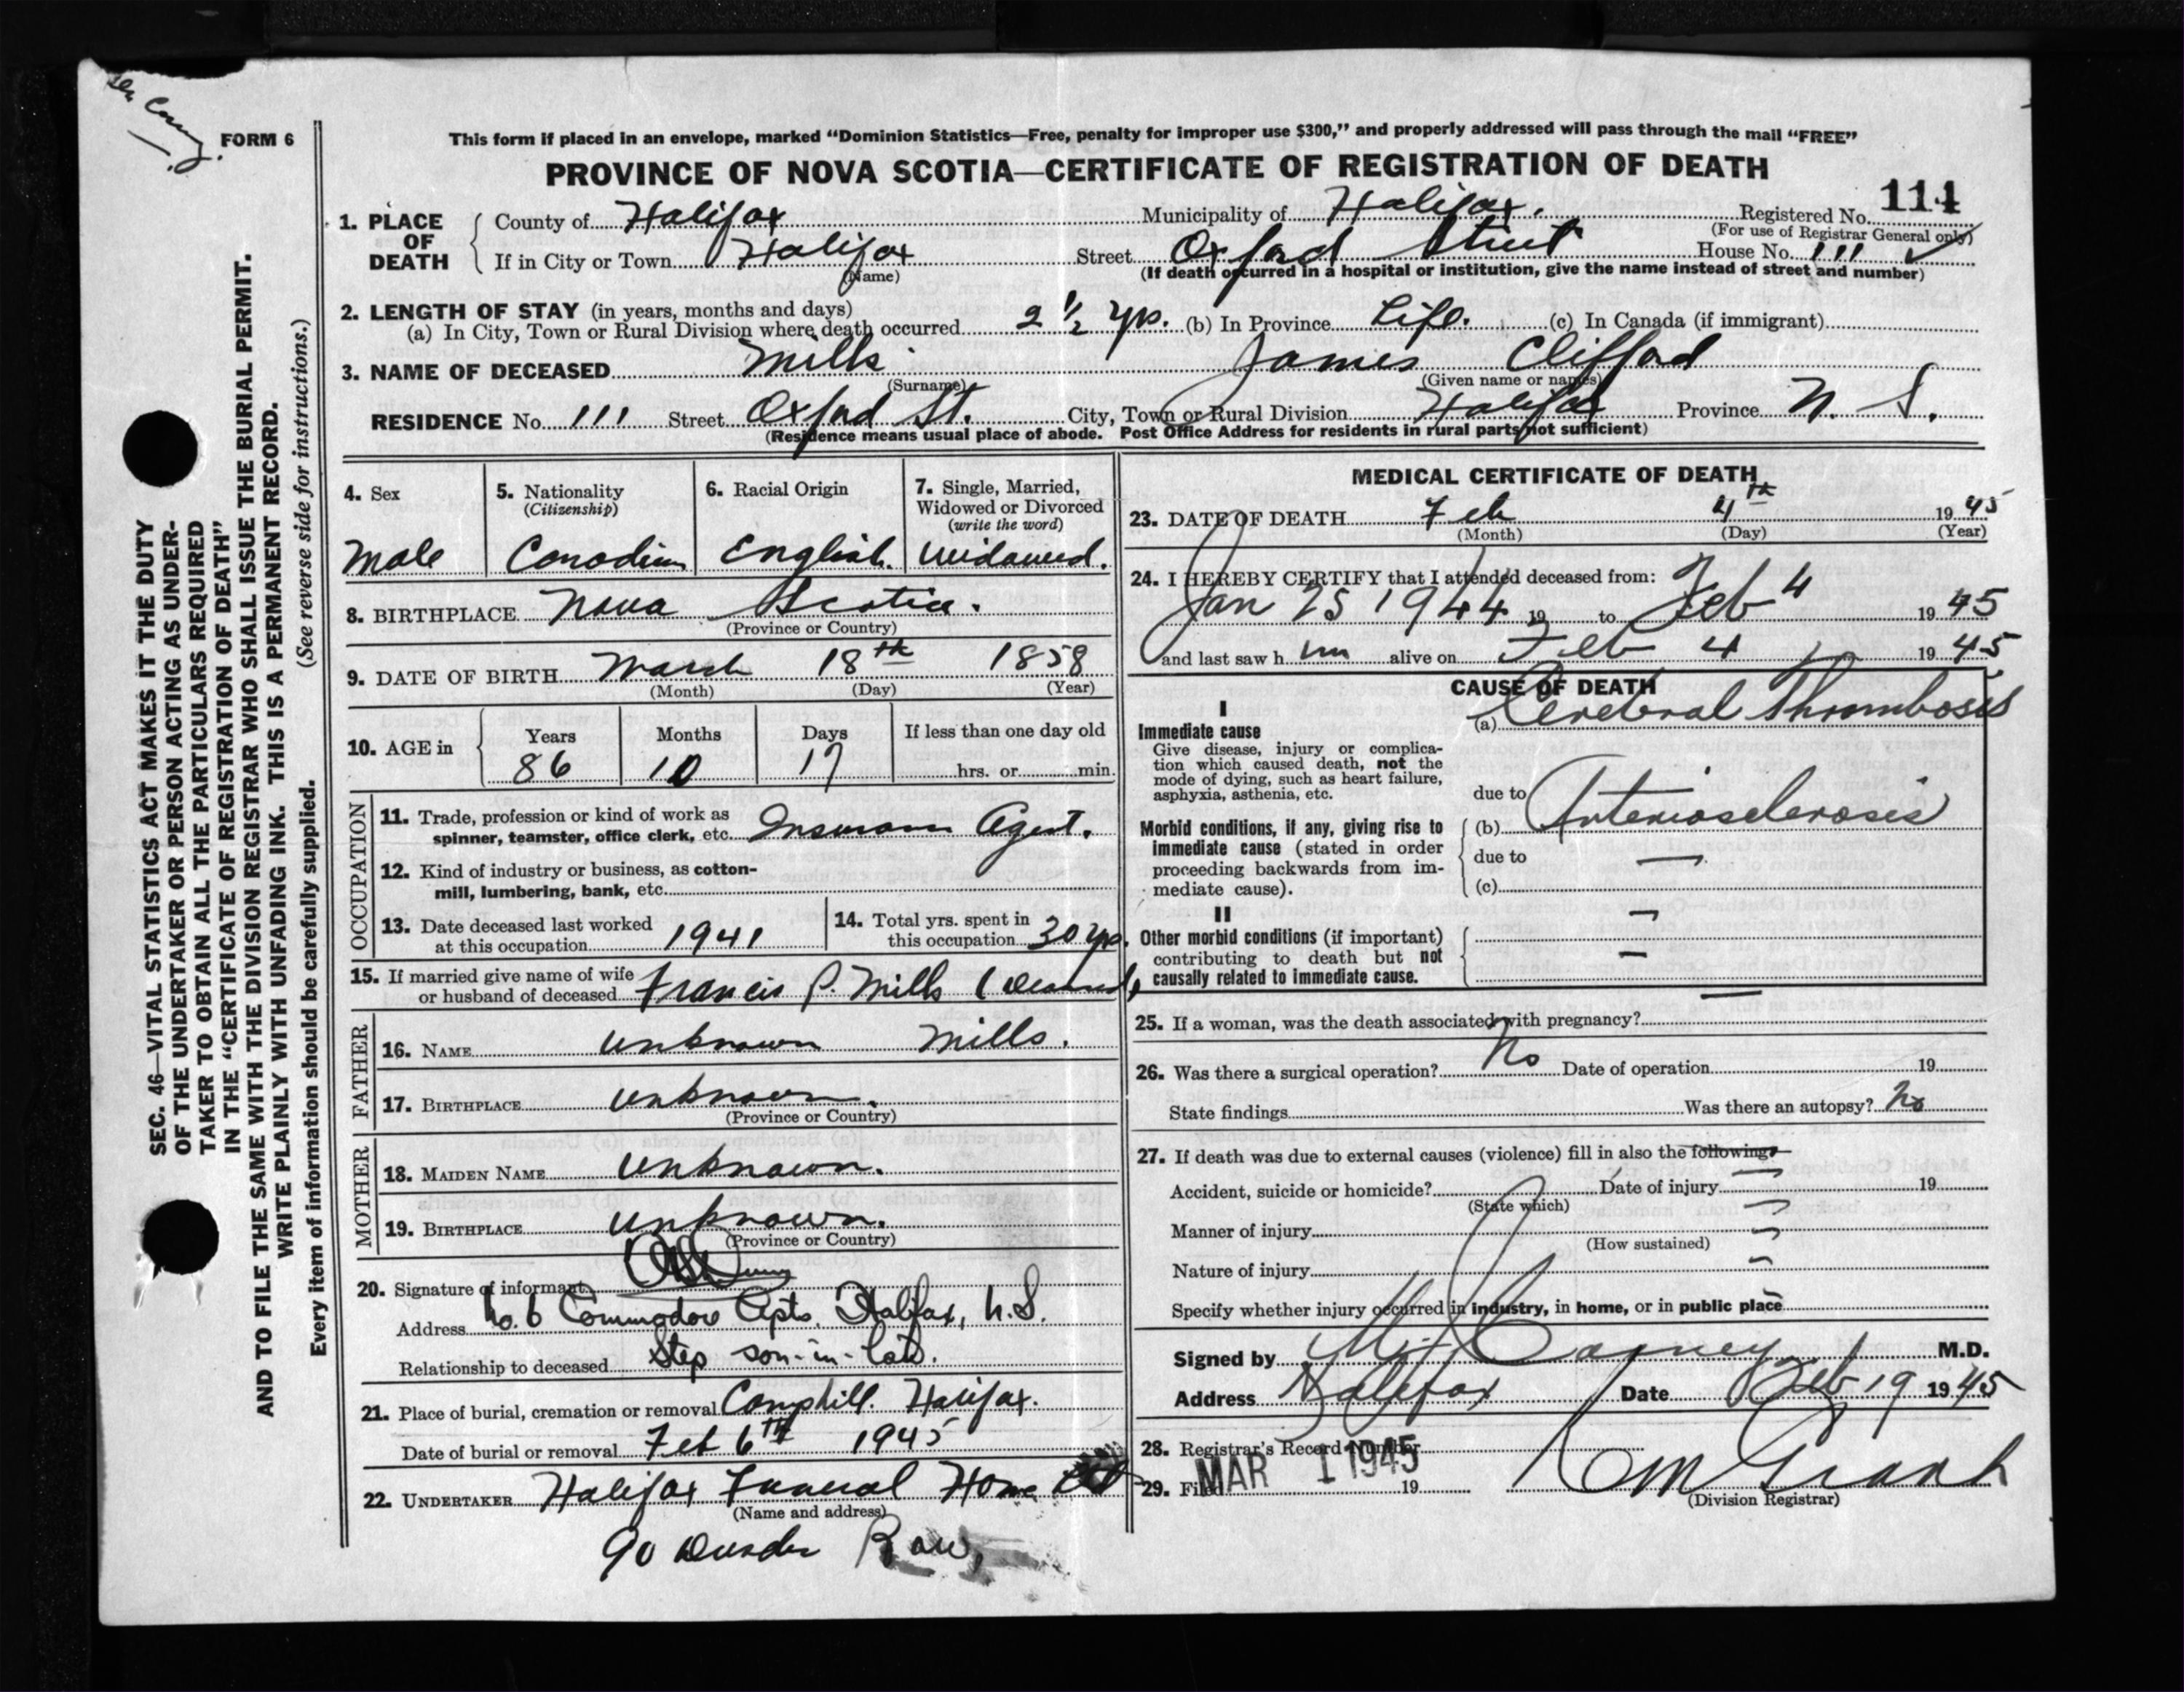 FORM 6
This form if placed in an envelope, marked “Dominion Statistics—Free, penalty for improper use $300,” and properly addressed will pass through the mail “FREE”
PROVINCE OF NOVA SCOTIA—CERTIFICATE OF REGISTRATION OF DEATH
114
1. PLACE OF DEATH
County of Halifax Municipality of Halifax. Registered No.
(For use of Registrar General only)
If in City or Town Halifax Street Oxford Street House No. 111
(Name) (If death occurred in a hospital or institution, give the name instead of street and number)
2. LENGTH OF STAY (in years, months and days)
(a) In City, Town or Rural Division where death occurred 2 1/2 yrs. (b) In Province Life. (c) In Canada (if immigrant)
3. NAME OF DECEASED Mills James Clifford
(Surname) (Given name or names)
RESIDENCE No. 111 Street Oxford St. City, Town or Rural Division Halifax Province N. S.
(Residence means usual place of abode. Post Office Address for residents in rural parts not sufficient)
4. Sex
Male
5. Nationality
(Citizenship)
Canadian
6. Racial Origin
English.
7. Single, Married,
Widowed or Divorced
(write the word)
Widowed.
8. BIRTHPLACE Nova Scotia.
(Province or Country)
9. DATE OF BIRTH March 18th 1858
(Month) (Day) (Year)
10. AGE in
Years Months Days If less than one day old
86 10 17 hrs. or min.
OCCUPATION
11. Trade, profession or kind of work as
spinner, teamster, office clerk, etc. Insurance Agent.
12. Kind of industry or business, as cotton-
mill, lumbering, bank, etc.
13. Date deceased last worked
at this occupation 1941
14. Total yrs. spent in
this occupation 30 yrs.
15. If married give name of wife
or husband of deceased Francis P. Mills (Deceased)
FATHER
16. NAME unknown Mills.
17. BIRTHPLACE unknown.
(Province or Country)
MOTHER
18. MAIDEN NAME unknown.
19. BIRTHPLACE unknown.
(Province or Country)
20. Signature of informant
Address No. 6 Commodore Apts. Halifax, N.S.
Relationship to deceased Step son-in-law.
21. Place of burial, cremation or removal Camphill. Halifax.
Date of burial or removal Feb 6th 1945
22. UNDERTAKER Halifax Funeral Home Ltd
(Name and address)
90 Row,
MEDICAL CERTIFICATE OF DEATH
23. DATE OF DEATH Feb 4th 1945
(Month) (Day) (Year)
24. I HEREBY CERTIFY that I attended deceased from:
Jan 25 1944 19 to Feb 4 1945
and last saw him alive on Feb 4 1945
CAUSE OF DEATH
I
Immediate cause
Give disease, injury or complica-
tion which caused death, not the
mode of dying, such as heart failure,
asphyxia, asthenia, etc.
(a) Cerebral Thrombosis
due to
Morbid conditions, if any, giving rise to
immediate cause (stated in order
proceeding backwards from im-
mediate cause).
(b) Arteriosclerosis
due to —
(c)
II
Other morbid conditions (if important)
contributing to death but not
causally related to immediate cause.
25. If a woman, was the death associated with pregnancy?
26. Was there a surgical operation? No Date of operation 19
State findings Was there an autopsy? No
27. If death was due to external causes (violence) fill in also the following:
Accident, suicide or homicide? Date of injury 19
(State which)
Manner of injury
(How sustained)
Nature of injury
Specify whether injury occurred in industry, in home, or in public place
Signed by Carney M.D.
Address Halifax Date Feb 19 1945
28. Registrar's Record Number
29. Filed MAR 1 1945 19
(Division Registrar)
SEC. 46—VITAL STATISTICS ACT MAKES IT THE DUTY
OF THE UNDERTAKER OR PERSON ACTING AS UNDER-
TAKER TO OBTAIN ALL THE PARTICULARS REQUIRED
IN THE “CERTIFICATE OF REGISTRATION OF DEATH”
AND TO FILE THE SAME WITH THE DIVISION REGISTRAR WHO SHALL ISSUE THE BURIAL PERMIT.
WRITE PLAINLY WITH UNFADING INK. THIS IS A PERMANENT RECORD.
Every item of information should be carefully supplied. (See reverse side for instructions.)